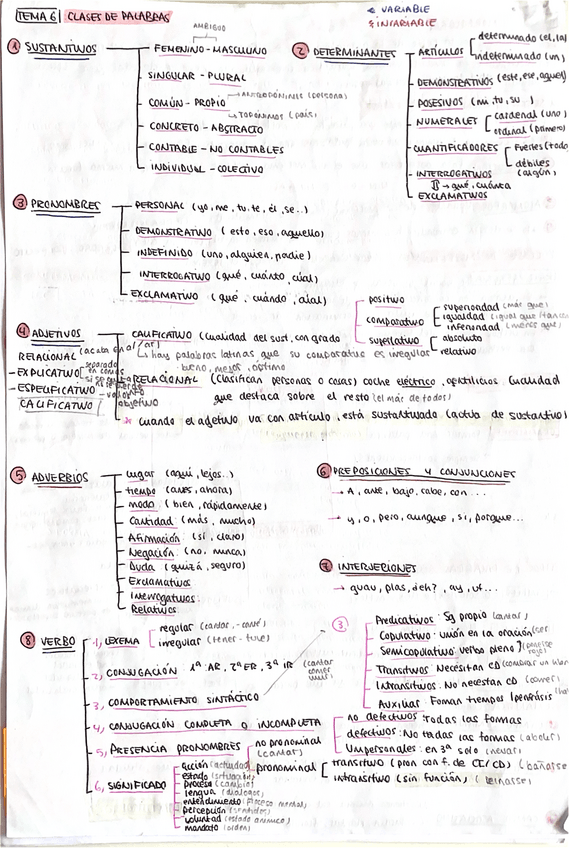 TEMA 6 CLASES DE PALABRAS
VARIABLE
INVARIABLE
AMBIGUO
1 SUSTANTIVOS
FEMENINO - MASCULINO
SINGULAR - PLURAL
COMÚN - PROPIO
ANTROPÓNIMOS (persona)
TOPÓNIMOS (país)
CONCRETO - ABSTRACTO
CONTABLE - NO CONTABLES
INDIVIDUAL - COLECTIVO
2 DETERMINANTES
ARTÍCULOS
determinado (el, la)
indeterminado (un)
DEMOSTRATIVOS (este, ese, aquel)
POSESIVOS (mi, tu, su)
NUMERALES
cardenal (uno)
ordinal (primero)
CUANTIFICADORES
Fuertes (todo
débiles (algún)
INTERROGATIVOS
→ qué, cuánta
EXCLAMATIVOS
3 PRONOMBRES
PERSONAL (yo, me, tu, te, él, se..)
DEMOSTRATIVO (esto, eso, aquello)
INDEFINIDO (uno, alguien, nadie)
INTERROGATIVO (qué, cuánto, cúal)
EXCLAMATIVO (qué, cuándo, cúal)
4 ADJETIVOS
CALIFICATIVO (cualidad del sust, con grado
positivo
comparativo
superioridad (más que)
igualdad (igual que/tan como)
inferioridad (menos que)
superlativo
absoluto
relativo
RELACIONAL (acaba en al/ar)
→ hay palabras latinas que su comparativo es irregular
- bueno, mejor, óptimo
- EXPLICATIVO
separado en comas
- ESPECIFICATIVO
CALIFICATIVO
objetivo
RELACIONAL (clasifican personas o cosas) coche eléctrico, gentilicios. Cualidad
que destaca sobre el resto (el más de todos)
* cuando el adjetivo va con artículo, está sustantivado (actúa de sustantivo)
5 ADVERBIOS
lugar (aquí, lejos..)
tiempo (antes, ahora)
modo (bien, rápidamente)
Cantidad (más, mucho)
Afirmación (sí, claro)
Negación (no, nunca)
Duda (quizá, seguro)
Exclamativos
Interrogativos
Relativos
6 PREPOSICIONES Y CONJUNCIONES
→ A, ante, bajo, cabe, con ...
→ y, o, pero, aunque, si, porque...
7 INTERJECIONES
→ guau, plas, ¿eh?, ay, uf...
8 VERBO
1, LEXEMA
regular (cantar, - canté)
irregular (tener - tuve)
2, CONJUGACIÓN 1ª AR, 2ª ER, 3ª IR (cantar comer vivir)
3, COMPORTAMIENTO SINTÁCTICO
4, CONJUGACIÓN COMPLETA O INCOMPLETA
5, PRESENCIA PRONOMBRES
no pronominal (cantar)
pronominal
transitivo (pron con f. de CI/CD) (bañarse
intransitivo (sin función)
6, SIGNIFICADO
acción (actividad)
estado (situación)
proceso (cambio)
lengua (dialogar)
entendimiento (proceso mental)
percepción (sentidos)
voluntad (estado anímico)
mandato (orden)
3
Predicativos: Sg propio (cantar)
Copulativo: unión en la oración (ser
Semicopulativo: verbo pleno (ponerse rojo)
Transitivos Necesitan CD
Intransitivos: No necesitan CD
Auxiliar: Forman tiempo/perífrasis
no defectivos: todas las formas
defectivos: No todas las formas (abolir)
Unipersonales: en 3ª solo (nevar)